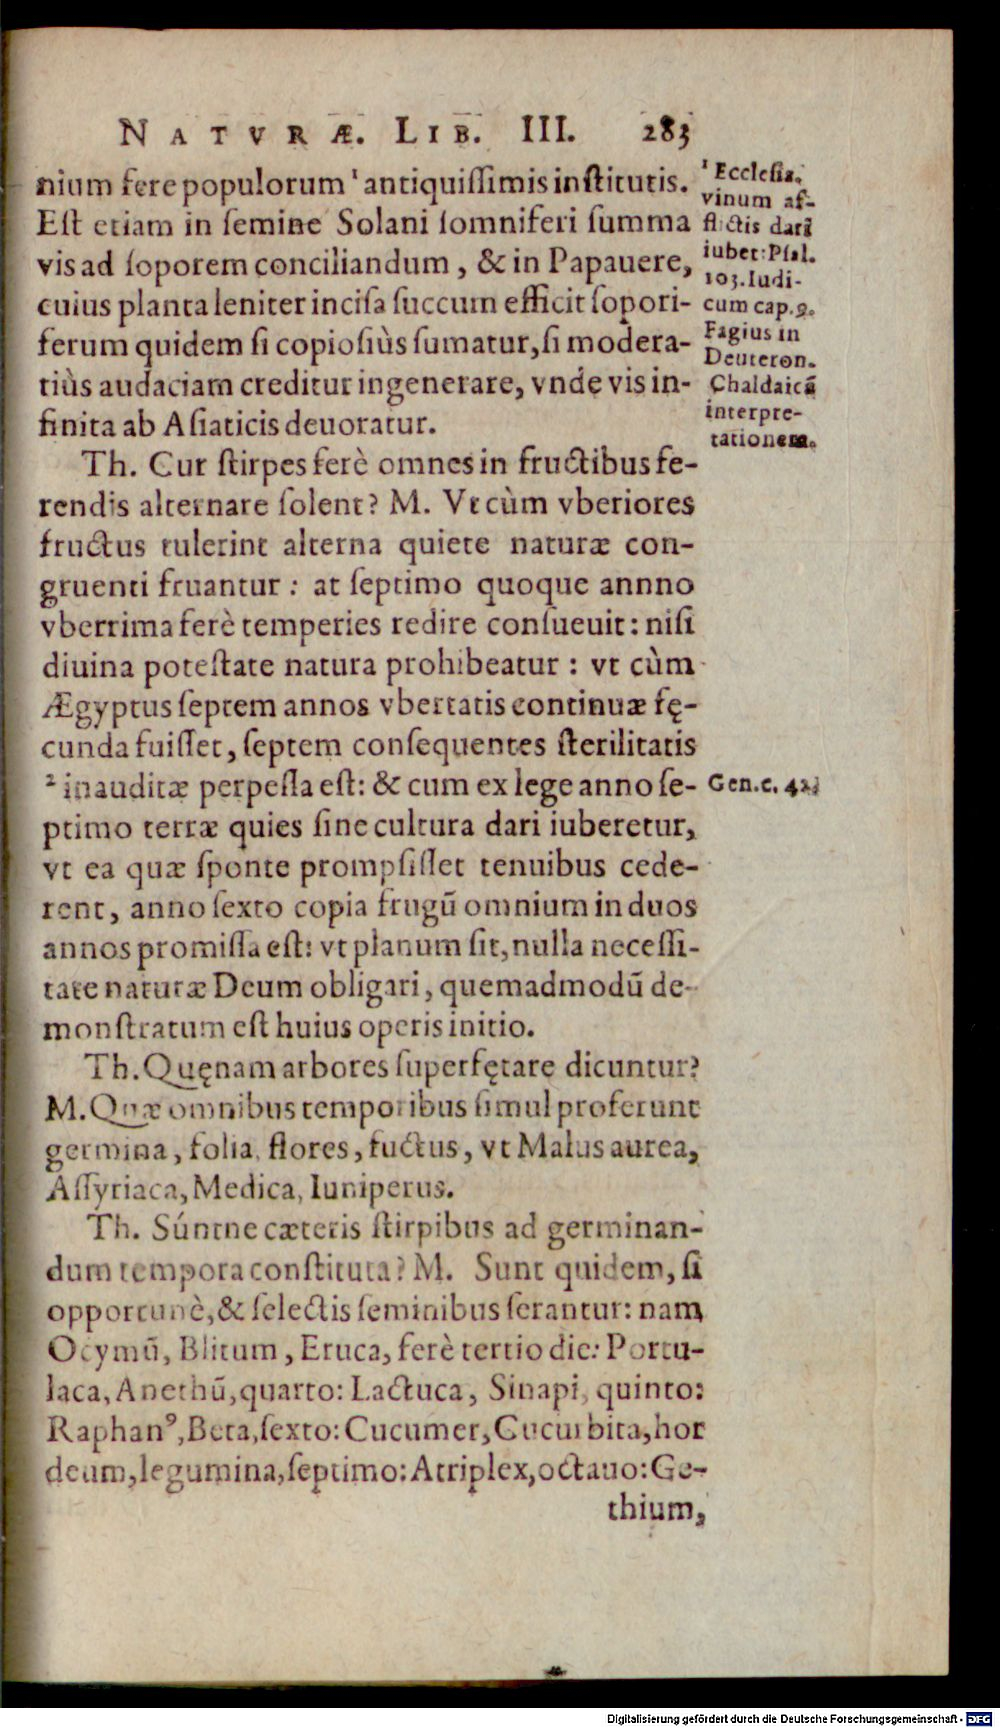 NATVRÆ. LIB. III. 283
nium fere populorum ¹ antiquiſſimis inſtitutis.
Eſt etiam in ſemine Solani ſomniferi ſumma
vis ad ſoporem conciliandum, & in Papauere,
cuius planta leniter inciſa ſuccum efficit ſopori-
ferum quidem ſi copioſiùs ſumatur, ſi modera-
tiùs audaciam creditur ingenerare, vnde vis in-
finita ab Aſiaticis deuoratur.
Th. Cur ſtirpes ferè omnes in fructibus fe-
rendis alternare ſolent? M. Vt cùm vberiores
fructus tulerint alterna quiete naturæ con-
gruenti fruantur: at ſeptimo quoque annno
vberrima ferè temperies redire conſueuit: niſi
diuina poteſtate natura prohibeatur: vt cùm
Ægyptus ſeptem annos vbertatis continuæ fę-
cunda fuiſſet, ſeptem conſequentes ſterilitatis
² inauditæ perpeſſa eſt: & cum ex lege anno ſe-
ptimo terræ quies ſine cultura dari iuberetur,
vt ea quæ ſponte prompſiſſet tenuibus cede-
rent, anno ſexto copia frugū omnium in duos
annos promiſſa eſt: vt planum ſit, nulla neceſſi-
tate naturæ Deum obligari, quemadmodū de-
monſtratum eſt huius operis initio.
Th. Quęnam arbores ſuperfętare dicuntur?
M. Quæ omnibus temporibus ſimul proferunt
germina, folia, flores, fuctus, vt Malus aurea,
Aſſyriaca, Medica, Iuniperus.
Th. Súntne cæteris ſtirpibus ad germinan-
dum tempora conſtituta? M. Sunt quidem, ſi
opportunè, & ſelectis ſeminibus ſerantur: nam
Ocymū, Blitum, Eruca, ferè tertio die: Portu-
laca, Anethū, quarto: Lactuca, Sinapi, quinto:
Raphanꝰ, Beta, ſexto: Cucumer, Cucurbita, hor
deum, legumina, ſeptimo: Atriplex, octauo: Ge-
thium,
¹ Eccleſia.
vinum af-
flictis dari
iubet: Pſal.
103. Iudi-
cum cap. 9.
Fagius in
Deuteron.
Chaldaicā
interpre-
tationem.
Gen. c. 42.
Digitalisierung gefördert durch die Deutsche Forschungsgemeinschaft - DFG